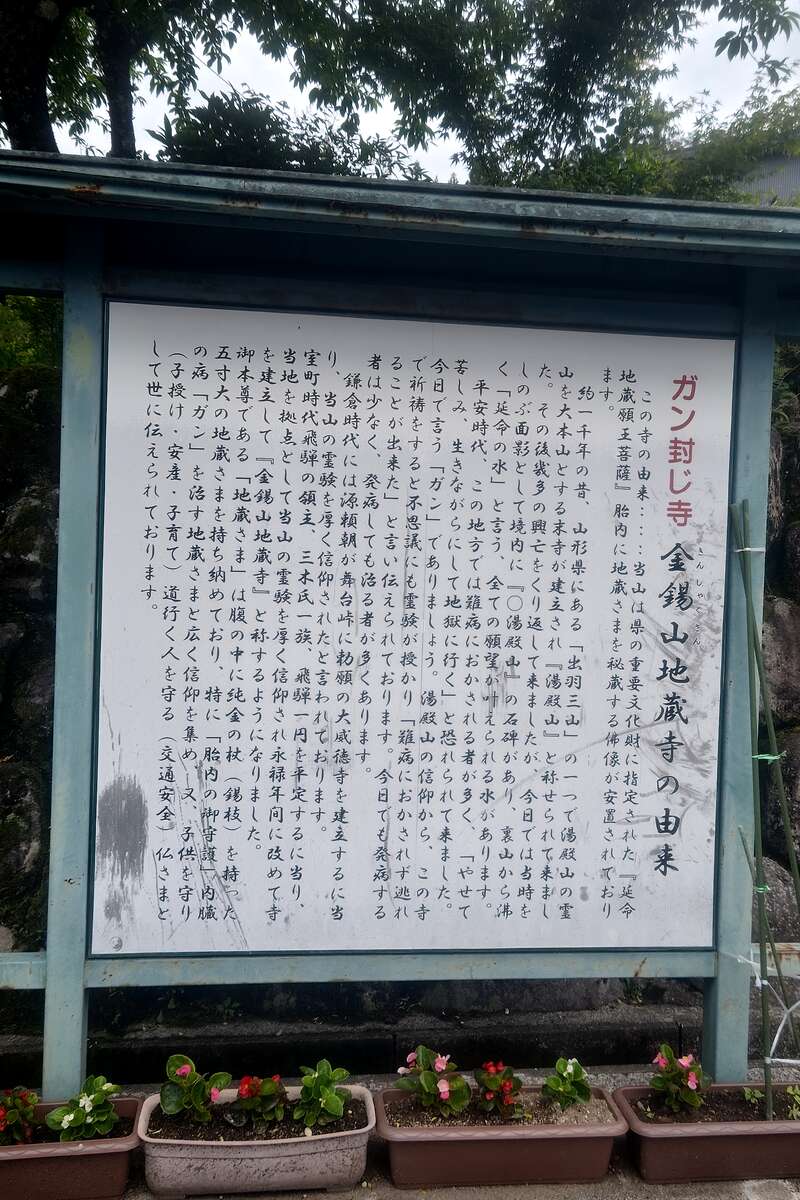 ガン封じ寺 金錫山地蔵寺の由来
きん しゃく ざん
この寺の由来・・・・当山は県の重要文化財に指定された『延命
地蔵願王菩薩』胎内に地蔵さまを秘蔵する佛像が安置されており
ます。
約一千年の昔、山形県にある「出羽三山」の一つで湯殿山の霊
山を大本山とする末寺が建立され『湯殿山』と称せられて来まし
た。その後幾多の興亡をくり返して来ましたが、今日では当時を
しのぶ面影として境内に『〇湯殿山』の石碑があり、裏山から沸
く「延命の水」と言う、全ての願望が叶えられる水があります。
平安時代、この地方では難病におかされる者が多く、「やせて
苦しみ、生きながらにして地獄に行く」と恐れられて来ました。
今日で言う「ガン」でありましょう。湯殿山の信仰から、この寺
で祈祷をすると不思議にも霊験が授かり「難病におかされず逃れ
ることが出来た」と言い伝えられております。今日でも発病する
者は少なく、発病しても治る者が多くあります。
鎌倉時代には源頼朝が舞台峠に勅願の大威徳寺を建立するに当
り、当山の霊験を厚く信仰されたと言われております。
室町時代飛騨の領主、三木氏一族、飛騨一円を平定するに当り、
当地を拠点として当山の霊験を厚く信仰され永禄年間に改めて寺
を建立して『金錫山地蔵寺』と称するようになりました。
御本尊である「地蔵さま」は腹の中に純金の杖（錫枝）を持った
五寸大の地蔵さまを持ち納めており、特に「胎内の御守護」内臓
の病「ガン」を治す地蔵さまと広く信仰を集め、又、子供を守り
（子授け・安産・子育て）道行く人を守る（交通安全）仏さまと
して世に伝えられております。